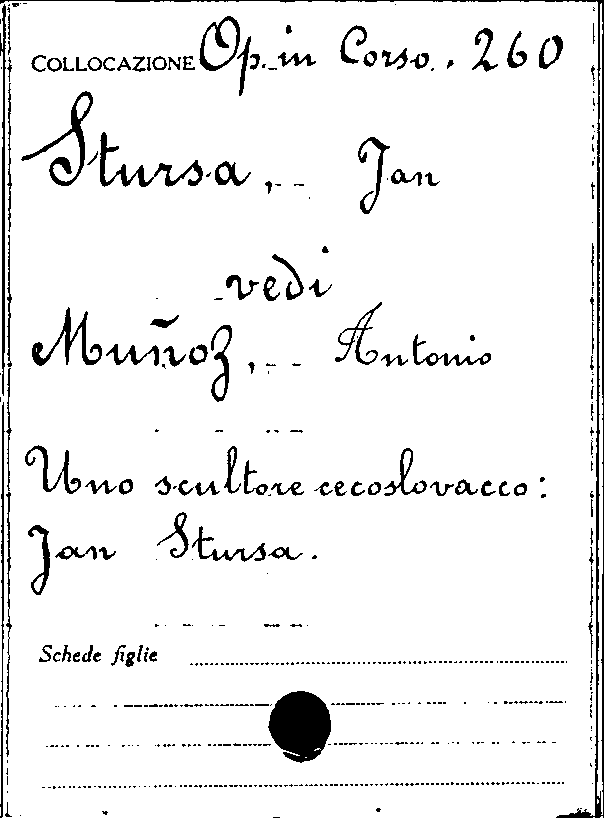 COLLOCAZIONE Op. in Corso. 260
Stursa, Jan
vedi
Muñoz, Antonio
Uno scultore cecoslovacco:
Jan Stursa.
Schede figlie